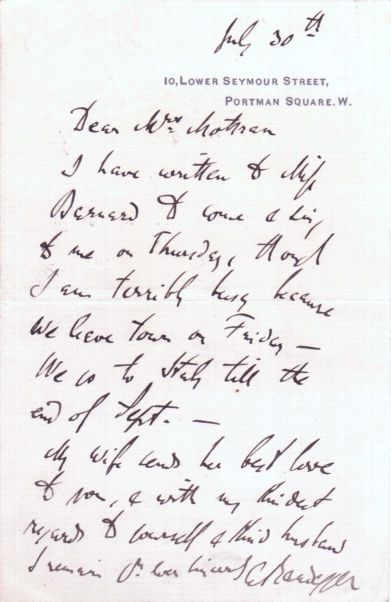 July 30th
10, LOWER SEYMOUR STREET,
PORTMAN SQUARE. W.
Dear Mrs
I have written to Miss
Barnard to come & sing
to me on Thursday, though
I am terribly busy because
we leave town on Friday —
We go to Italy till the
end of Sept. —
My wife sends her best love
to you, & with my kindest
regards to yourself & husband
I remain yr ever sincerely A Randegger